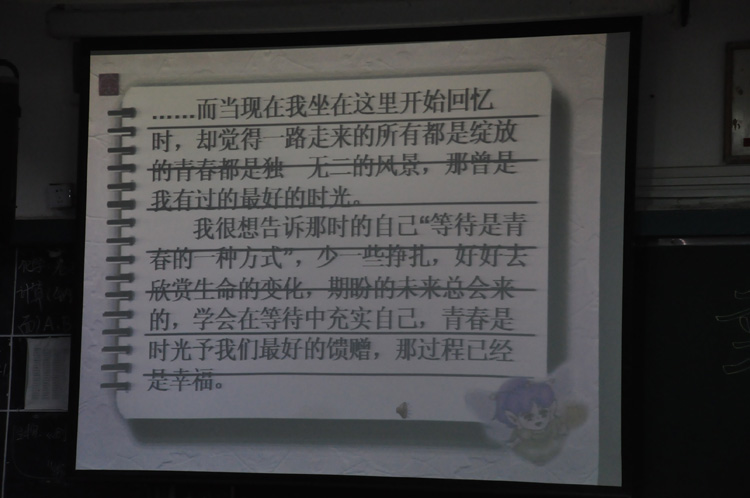 ……而当现在我坐在这里开始回忆
时，却觉得一路走来的所有都是绽放
的青春都是独 无二的风景，那曾是
我有过的最好的时光。
我很想告诉那时的自己“等待是青
春的一种方式”，少一些挣扎，好好去
欣赏生命的变化，期盼的未来总会来
的，学会在等待中充实自己，青春是
时光予我们最好的馈赠，那过程已经
是幸福。